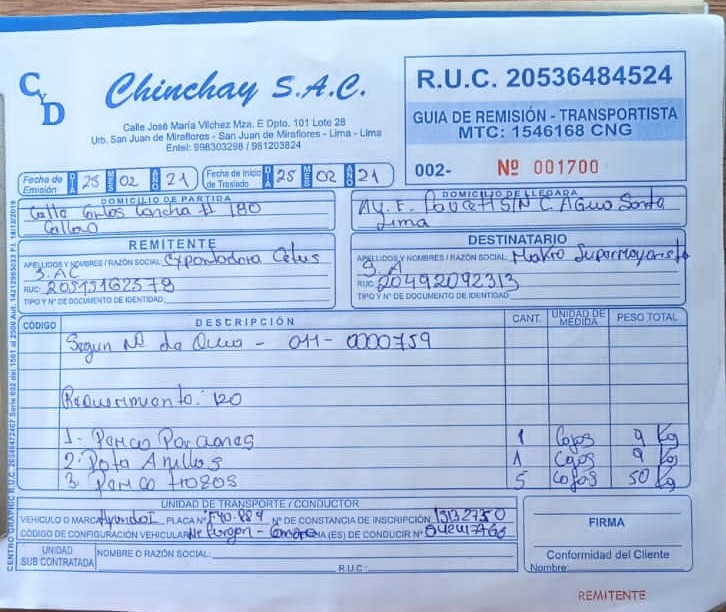 CyD
Chinchay S.A.C.
Calle José María Vilchez Mza. E Dpto. 101 Lote 28
Urb. San Juan de Miraflores - San Juan de Miraflores - Lima - Lima
Entel: 998303298 / 981203824
R.U.C. 20536484524
GUIA DE REMISIÓN - TRANSPORTISTA
MTC: 1546168 CNG
002- Nº 001700
Fecha de Emisión DIA 25 MES 02 AÑO 21 Fecha de Inicio de Traslado DIA 25 MES 02 AÑO 21
DOMICILIO DE PARTIDA
Calle Carlos Concha # 180
Callao
DOMICILIO DE LLEGADA
AV. F. S/N C. Agua Santa
Lima
REMITENTE
APELLIDOS Y NOMBRES / RAZÓN SOCIAL: Exportadora Cetus
S.AC
RUC: 20515162578
TIPO Y Nº DE DOCUMENTO DE IDENTIDAD:
DESTINATARIO
APELLIDOS Y NOMBRES / RAZÓN SOCIAL: Makro Supermayorista
S.A
RUC: 20492092313
TIPO Y Nº DE DOCUMENTO DE IDENTIDAD:
CÓDIGO DESCRIPCIÓN CANT. UNIDAD DE MEDIDA PESO TOTAL
Segun Nº de - 011- 0000759
Requerimiento: 120
1- Perico Porciones 1 Cajas 9 Kg
2. Pota Anillos 1 Cajas 9 Kg
3 Perico trozos 5 Cajas 50 Kg
UNIDAD DE TRANSPORTE / CONDUCTOR
VEHICULO O MARCA Hyundai PLACA Nº Nº DE CONSTANCIA DE INSCRIPCIÓN
CÓDIGO DE CONFIGURACIÓN VEHICULAR furgon - (ES) DE CONDUCIR Nº
UNIDAD SUB CONTRATADA NOMBRE O RAZÓN SOCIAL:
R.U.C.:
FIRMA
Conformidad del Cliente
Nombre:
REMITENTE